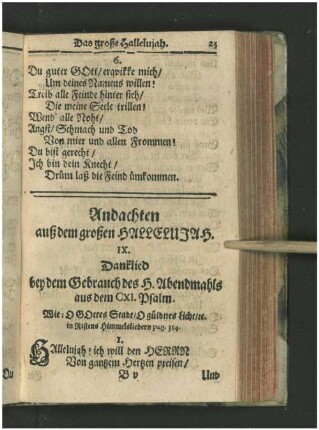 Das große Hallelujah. 25
6.
Du guter GOtt/ erqvikke mich/
Um deines Namens willen!
Treib alle Feinde hinter sich/
Die meine Seele trillen!
Wend' alle Noht/
Angst/ Schmach und Tod
Von mier und allen Frommen!
Du bist gerecht/
Ich bin dein Knecht/
Drüm laß die Feind ümkommen.
Andachten
auß dem großen HALLELUJAH.
IX.
Danklied
bey dem Gebrauch des H. Abendmahls
aus dem CXI. Psalm.
Wie: O GOttes Stadt/ O güldnes Licht/ ꝛc.
in Ristens Himmelsliedern pag. 314.
1.
HAllelujah! ich will den HERRN
Von gantzem Hertzen preisen/
B v Und